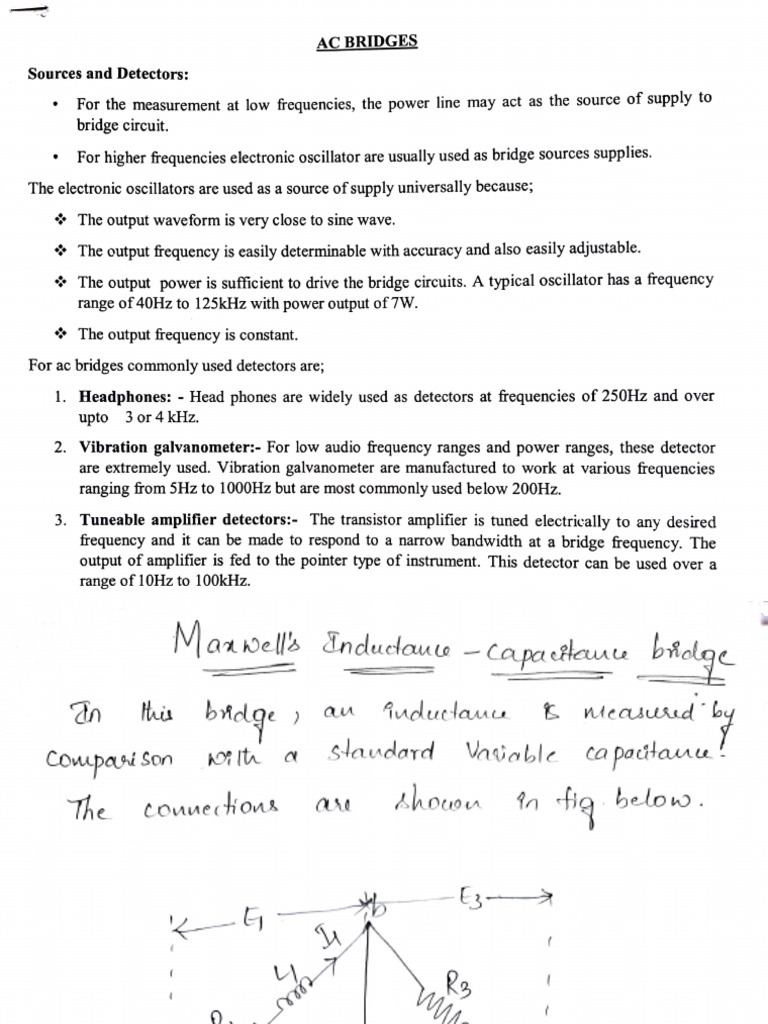 AC BRIDGES
Sources and Detectors:
• For the measurement at low frequencies, the power line may act as the source of supply to
bridge circuit.
• For higher frequencies electronic oscillator are usually used as bridge sources supplies.
The electronic oscillators are used as a source of supply universally because;
❖ The output waveform is very close to sine wave.
❖ The output frequency is easily determinable with accuracy and also easily adjustable.
❖ The output power is sufficient to drive the bridge circuits. A typical oscillator has a frequency
range of 40Hz to 125kHz with power output of 7W.
❖ The output frequency is constant.
For ac bridges commonly used detectors are;
1. Headphones: - Head phones are widely used as detectors at frequencies of 250Hz and over
upto 3 or 4 kHz.
2. Vibration galvanometer:- For low audio frequency ranges and power ranges, these detector
are extremely used. Vibration galvanometer are manufactured to work at various frequencies
ranging from 5Hz to 1000Hz but are most commonly used below 200Hz.
3. Tuneable amplifier detectors:- The transistor amplifier is tuned electrically to any desired
frequency and it can be made to respond to a narrow bandwidth at a bridge frequency. The
output of amplifier is fed to the pointer type of instrument. This detector can be used over a
range of 10Hz to 100kHz.
Maxwell's Inductance - capacitance bridge
In this bridge, an inductance is measured by
comparison with a standard Variable capacitance.
The connections are shown in fig below.
E1 b E3
I1
L1 R3